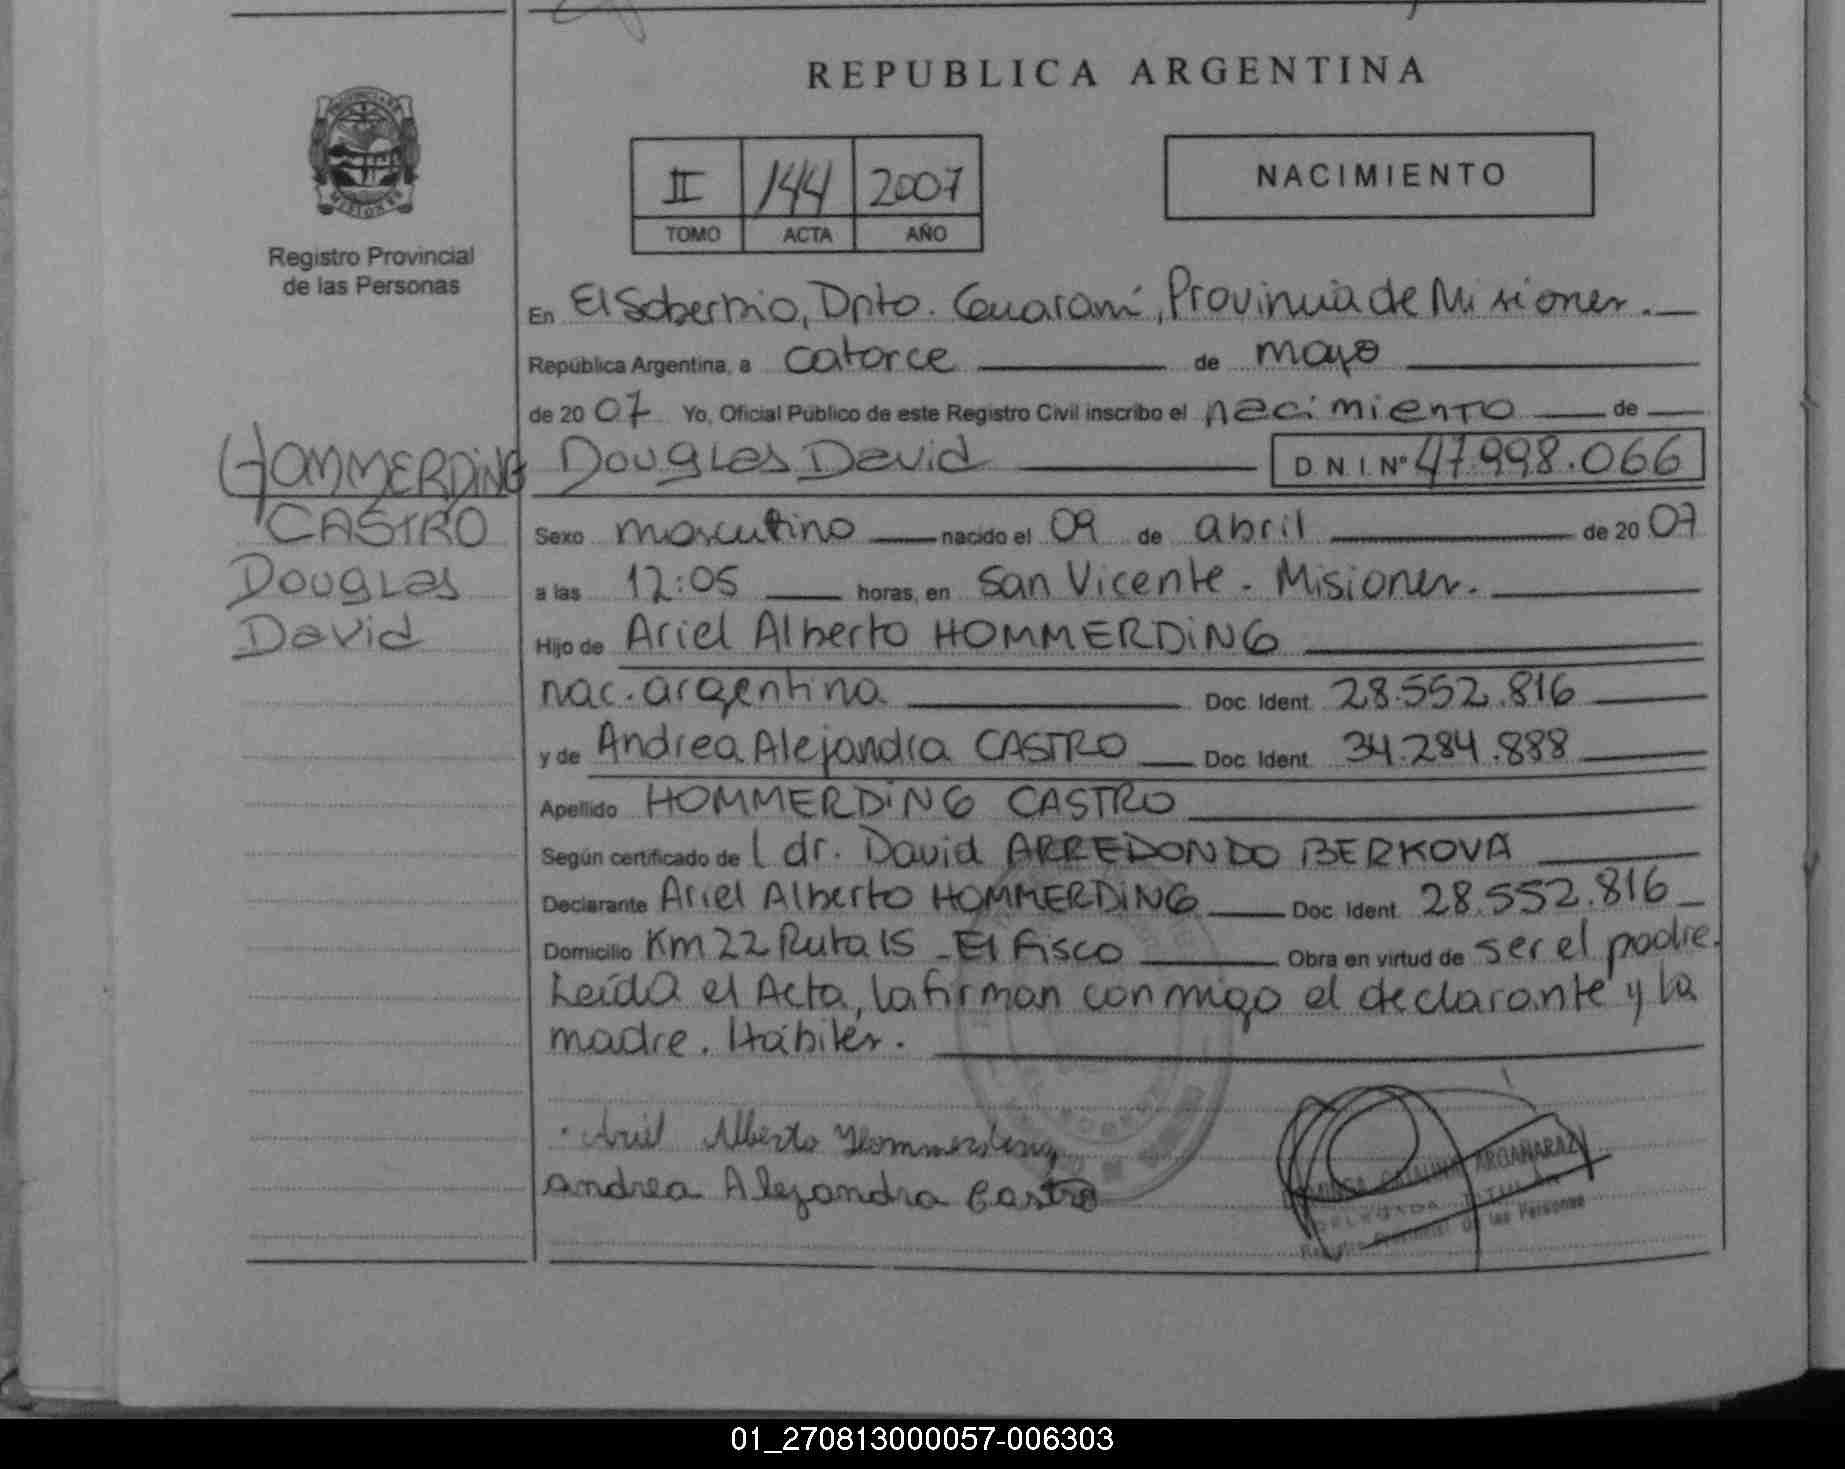 REPUBLICA ARGENTINA
Registro Provincial
de las Personas
II 144 2007
TOMO ACTA AÑO
NACIMIENTO
En El Soberbio, Dpto. Guaraní, Provincia de Misiones.
República Argentina, a catorce de mayo
de 20 07 Yo, Oficial Público de este Registro Civil inscribo el nacimiento de
HOMMERDING
CASTRO
Douglas
David
Douglas David D.N.I. Nº 47.998.066
Sexo masculino nacido el 09 de abril de 20 07
a las 12:05 horas, en San Vicente - Misiones.
Hijo de Ariel Alberto HOMMERDING
nac. argentina Doc. Ident. 28.552.816
y de Andrea Alejandra CASTRO Doc. Ident. 34.284.888
Apellido HOMMERDING CASTRO
Según certificado de l dr. David ARREDONDO BERKOVA
Declarante Ariel Alberto HOMMERDING Doc. Ident. 28.552.816
Domicilio Km 22 Ruta 15 - El Fisco Obra en virtud de ser el padre.
Leída el Acta, la firman conmigo el declarante y la
madre. Hábiles.
Ariel Alberto Hommerding
Andrea Alejandra Castro
CATALINA ARGAÑARAZ
DELEGADA TITULAR
de las Personas
01_270813000057-006303